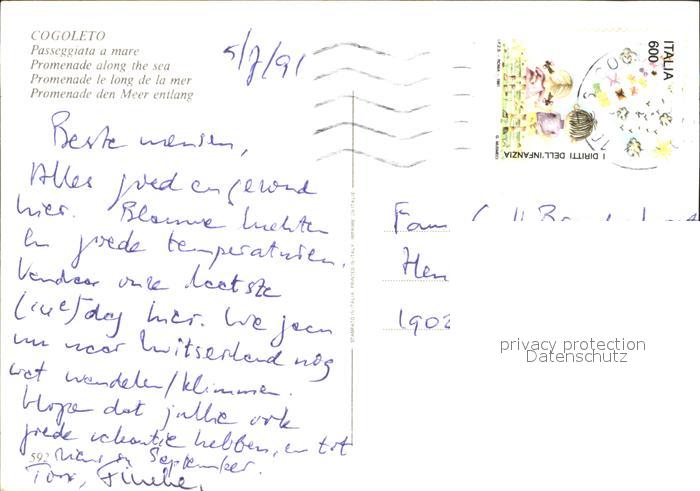 COGOLETO
Passeggiata a mare
Promenade along the sea
Promenade le long de la mer
Promenade den Meer entlang
5/7/91
Beste mensen,
Alles goed en gezond
hier. Blauwe luchten
en goede temperaturen.
Vandaag onze laatste
dag hier. We gaan
nu naar Zwitserland nog
wat wandelen/klimmen.
Hope dat jullie ook
goede vakantie hebben, en tot
ziens in September.
592
ITALIA
600
I DIRITTI DELL'INFANZIA
I.P.Z.S. - ROMA - 1991
Fam
Hen
1902
privacy protection
Datenschutz